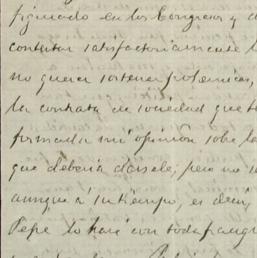 figurado en los Congresos y d
contestar satisfactoriamente l
no querer sostener polémicas,
la contrata de sociedad que t
formada mi opinión sobre l
que debería dársele; pero no
aunque a su tiempo, es decir,
Pepe lo haré con toda franq